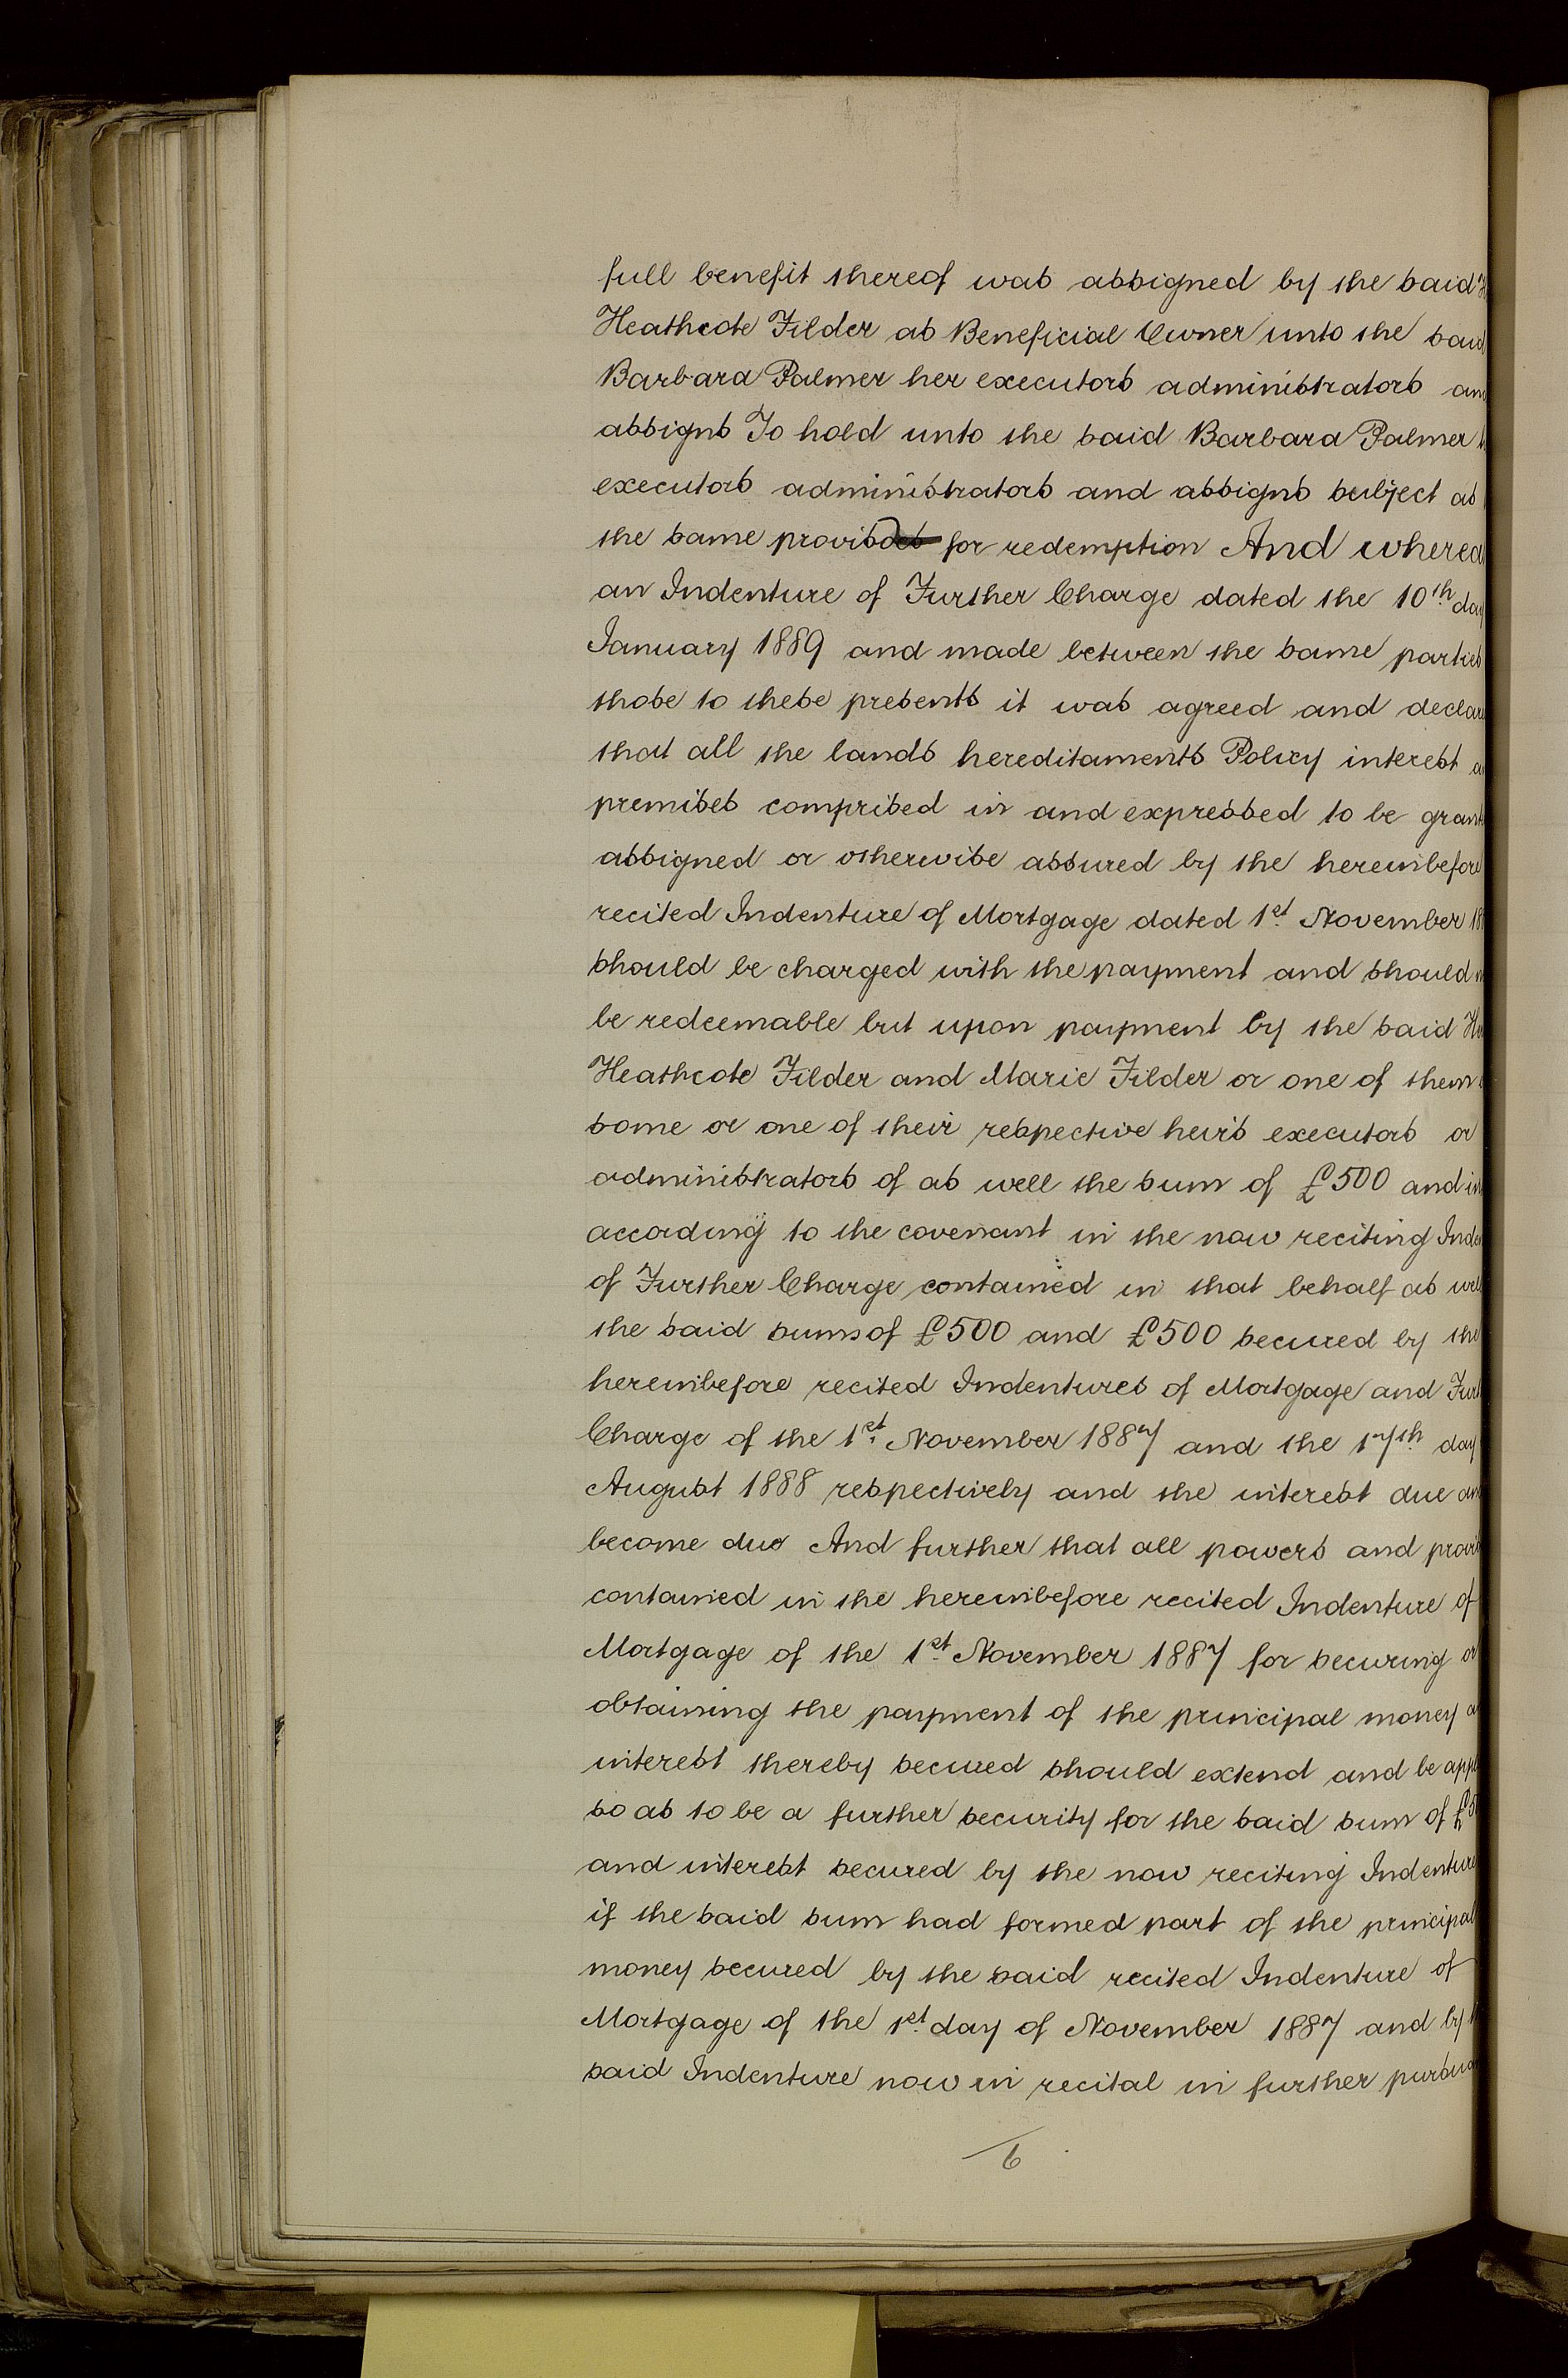 full benefit thereof was assigned by the said H
Heathcote Filder as Beneficial Owner unto the said
Barbara Palmer her executors administrators and
assigns To hold unto the said Barbara Palmer h
executors administrators and assigns subject as
the same proviso for redemption And whereas
an Indenture of Further Charge dated the 10th day
January 1889 and made between the same parties
those to these presents it was agreed and declare
that all the lands hereditaments Policy interest a
premises comprised in and expressed to be grant
assigned or otherwise assured by the hereinbefore
recited Indenture of Mortgage dated 1st November 188
should be charged with the payment and should n
be redeemable but upon payment by the said He
Heathcote Filder and Marie Filder or one of them
some or one of their respective heirs executors or
administrators of as well the sum of £500 and in
according to the covenant in the now reciting Inden
of Further Charge contained in that behalf as well
the said sums of £500 and £500 secured by the
hereinbefore recited Indentures of Mortgage and Furt
Charge of the 1st November 1887 and the 17th day
August 1888 respectively and the interest due and
become due And further that all powers and provis
contained in the hereinbefore recited Indenture of
Mortgage of the 1st November 1887 for securing or
obtaining the payment of the principal money a
interest thereby secured should extend and be appl
so as to be a further security for the said sum of £5
and interest secured by the now reciting Indenture
if the said sum had formed part of the principal
money secured by the said recited Indenture of
Mortgage of the 1st day of November 1887 and by t
said Indenture now in recital in further pursua
6